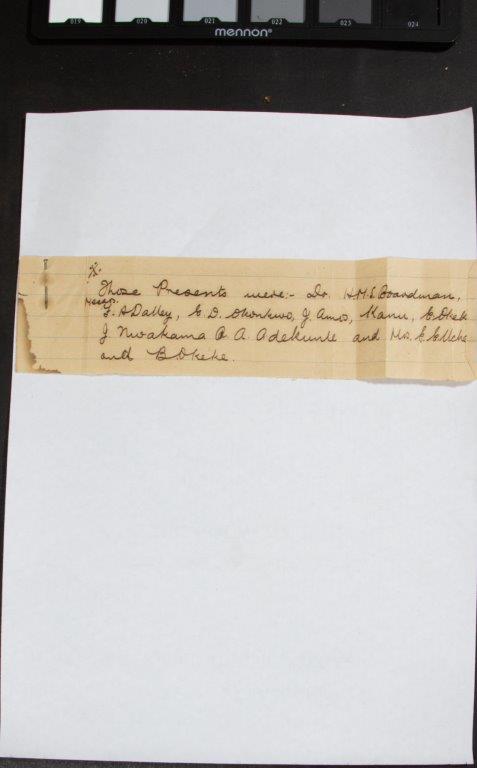 019 020 021 022 023 024
mennon®
X.
Those Presents were:- Dr. H.M.S. Boardman,
Messrs.
F. A Dalley, C. D. Okonkwo, J. Amos, Kanu, C. Okek
J. Nwakama A. A. Adekunle and Mrs. E. E. Uche
and B. Okeke.